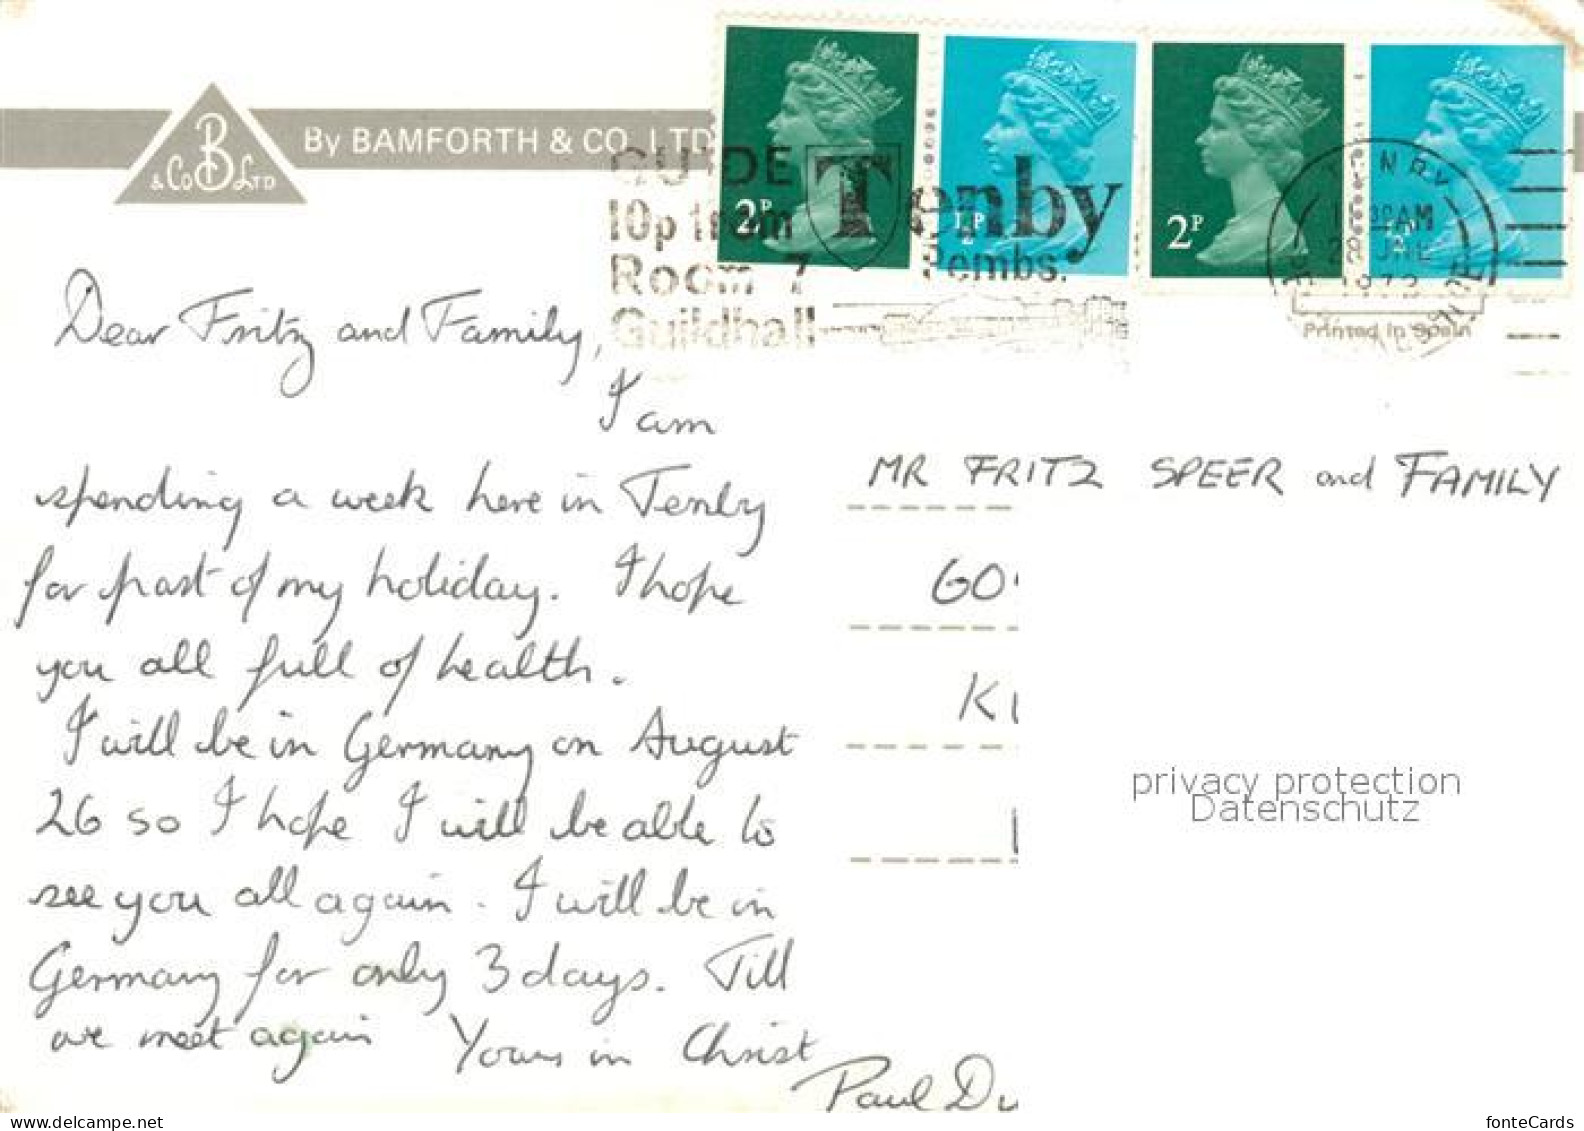 B
& Co LTD
By BAMFORTH & CO. LTD
GUIDE
10p from
Room 7
Guildhall
Tenby
Pembs.
2P
½P
2P
AM
JNE
Printed in Spain
Dear Fritz and Family,
I am
spending a week here in Tenby
for part of my holiday. I hope
you all full of health.
I will be in Germany on August
26 so I hope I will be able to
see you all again. I will be in
Germany for only 3 days. Till
we meet again Yours in Christ
Paul Du
MR FRITZ SPEER and FAMILY
GO
K
privacy protection
Datenschutz
fonteCards